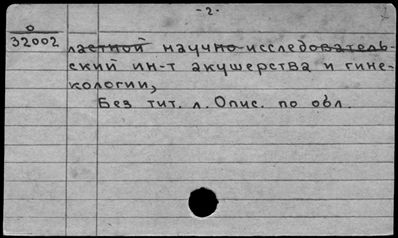 -2-
0
32002
ластной научно-исследователь-
ский ин-т акушерства и гине-
кологии,
Без тит. л. Опис. по обл.